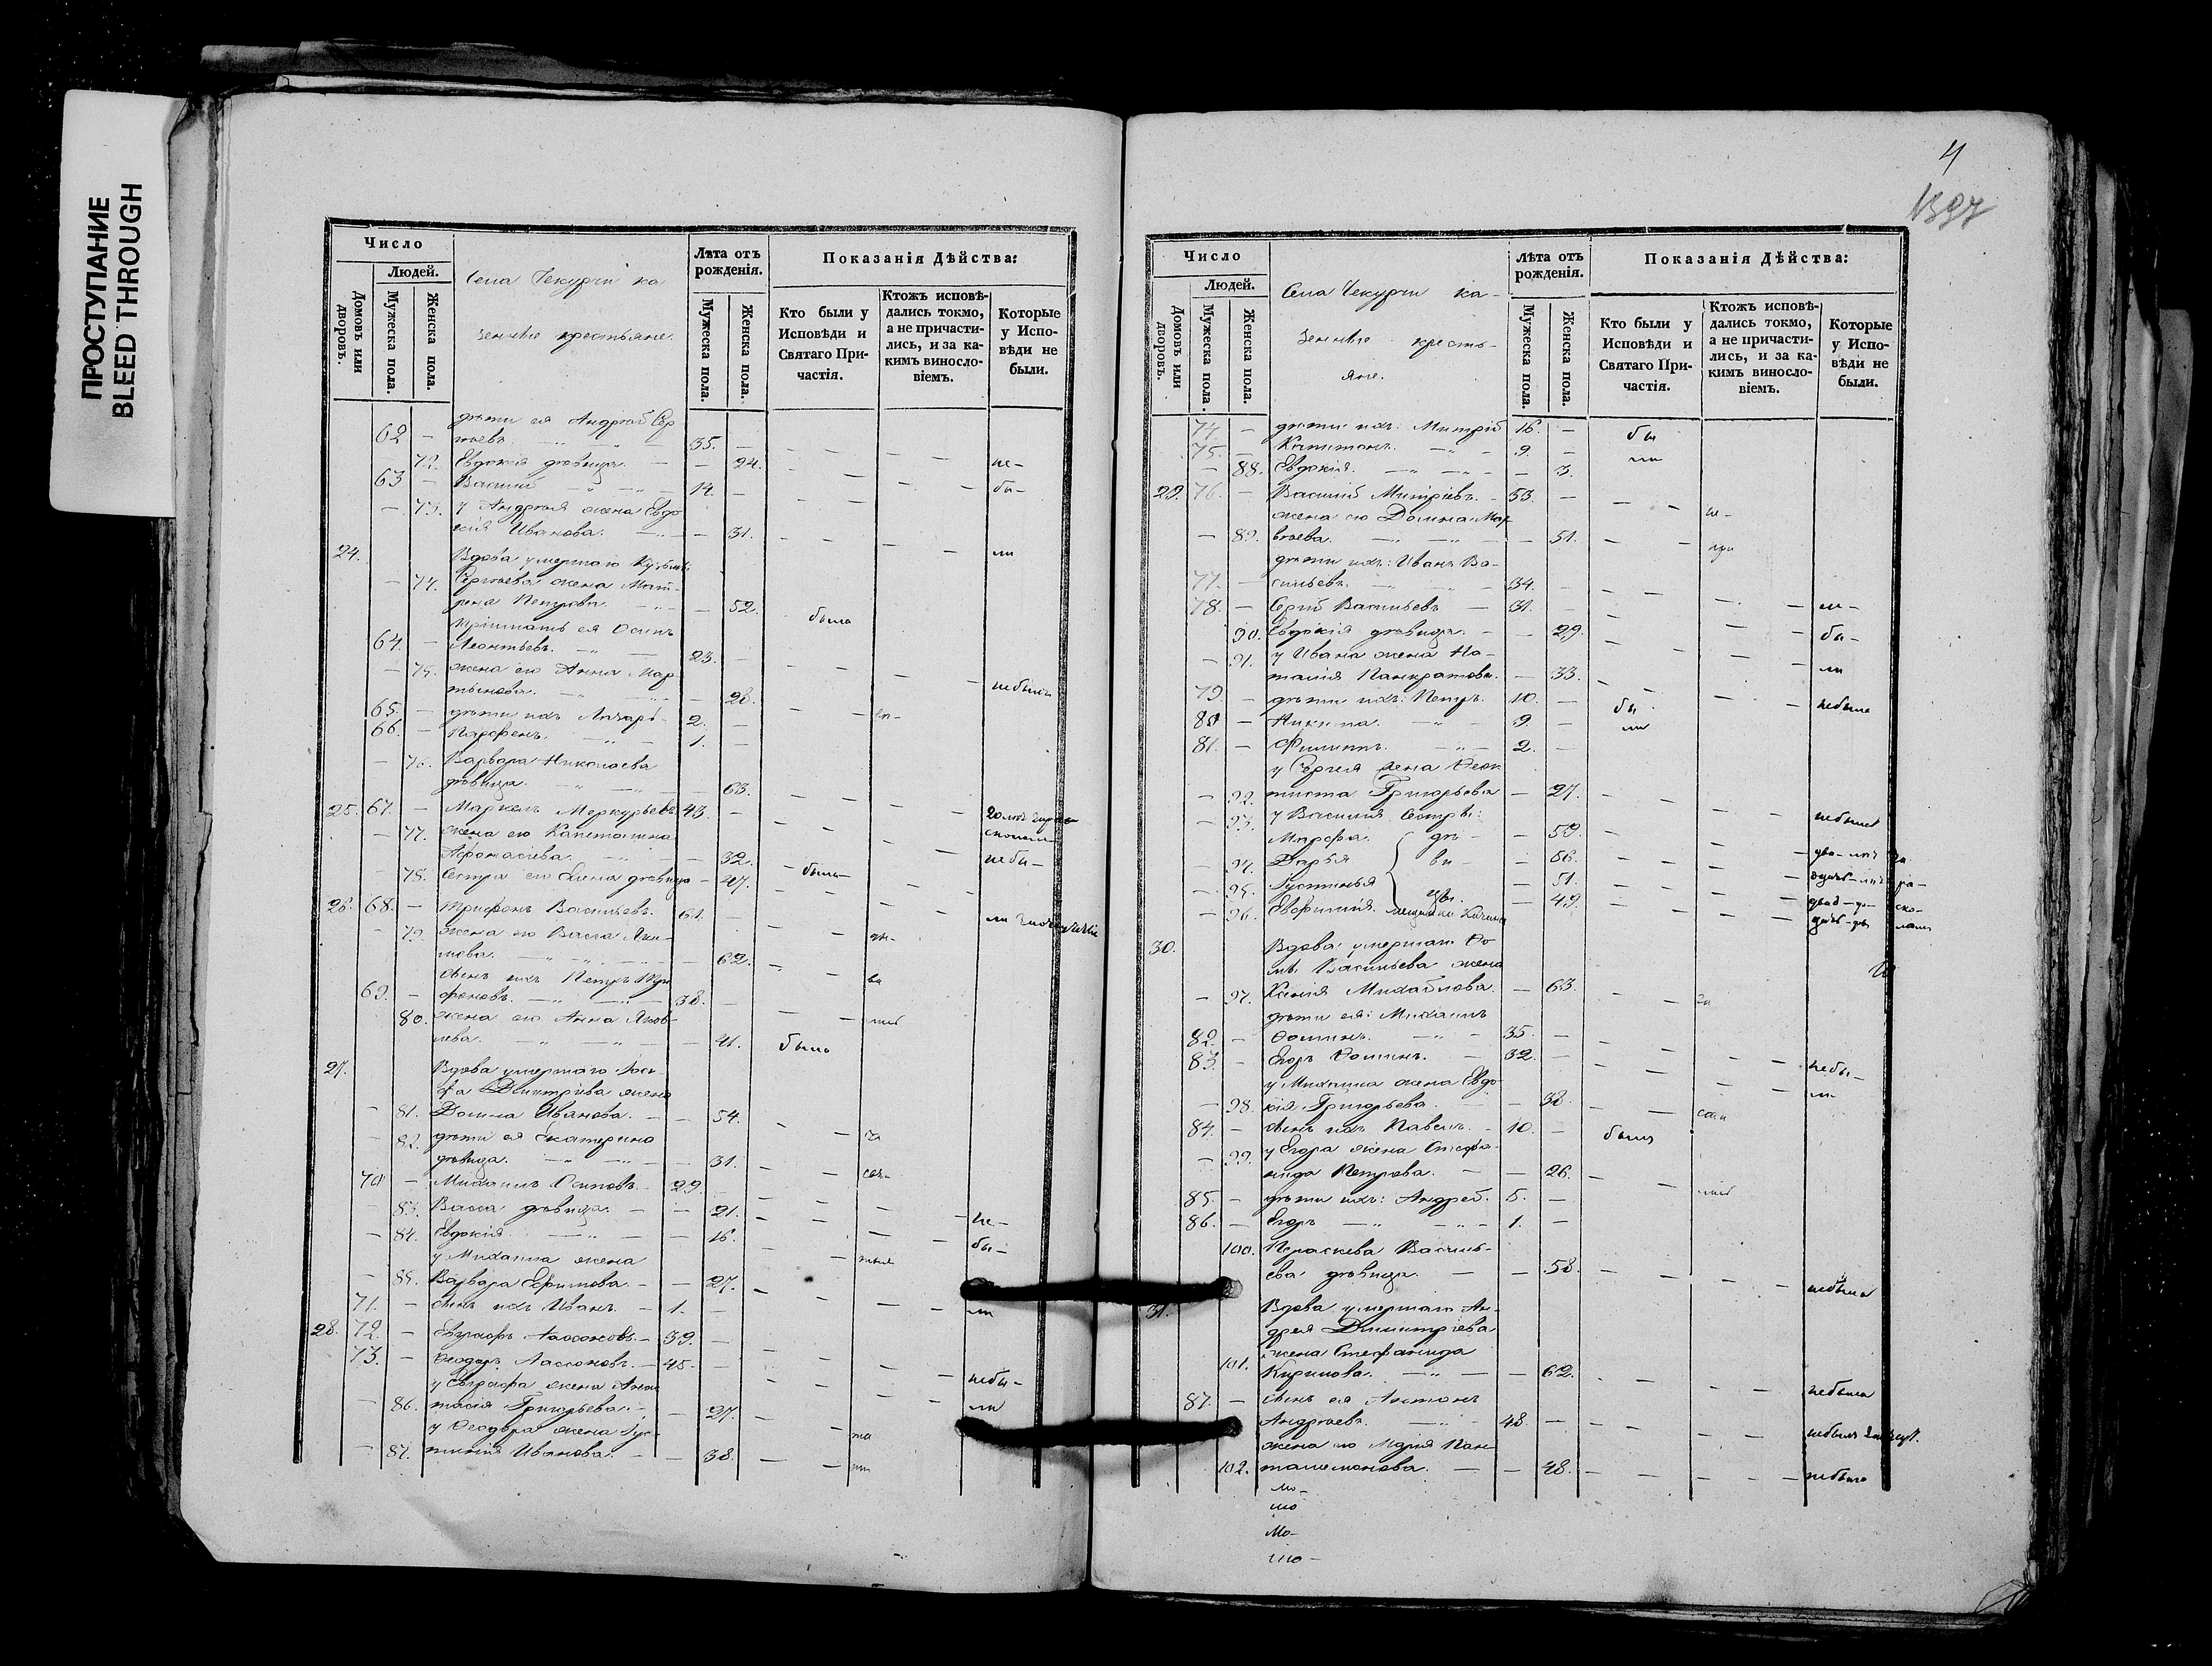 ПРОСТУПАНИЕ
BLEED THROUGH
Число
Людей.
Домовъ или дворовъ.
Мужеска пола.
Женска пола.
Села Чекурчи ка
зенные крестьяне.
Лѣта отъ рожденія.
Мужеска пола.
Женска пола.
Показанія Дѣйства:
Кто были у Исповѣди и Святаго Причастія.
Ктожъ исповѣдались токмо, а не причастились, и за какимъ винословіемъ.
Которые у Исповѣди не были.
дѣти ея Андрей Сер
62 – гѣевъ 35. –
– 72. Евдокія дѣвица. – – 24. не-
63 – Василій 14. – бы-
– 73. у Андрея жена Евдо
кія Иванова. – 31. ли
24. Вдова умершаго Кузьмы
– 74. Сергѣева жена Мат-
рена Петрова. – 52. была
пріимать ея Осипъ
64. – Леонтьевъ. 23. –
– 75. жена его Анна Мар
тынова. – 26. небыли
65. – дѣти ихъ Лазарь 2. –
66. – Парфенъ. 1. –
– 76. Варвара Николаева
дѣвица. – 63.
25. 67. – Маркелъ Меркурьевъ 43. –
– 77. жена его Капитолина
Афонасіева. – 32. небы-
– 78. Сестра его Елена дѣвица – 47. была
26. 68. – Трифонъ Васильевъ. 61.
– 79. жена его Васса Яки-
мова. – 62.
сынъ ихъ Петръ Три
69. – фоновъ. 38. –
80. жена его Анна Яков-
лева. – 41. была
27. Вдова умершаго Іоси
фа Дмитріева жена
– 81. Домна Иванова. – – 54.
– 82. дѣти ея Екатерина
дѣвица. – 31.
70 – Михаилъ Осиповъ. 29.
– 83. Васса дѣвица. – – 21. не-
– 84. Евдокія – 16. бы-
у Михаила жена
– 85. Варвара Ефимова. – – 27.
71. – сынъ ихъ Иванъ. – 1. – ли
28. 72. – Евграфъ Лассоновъ. – 39. –
73. – Ѳеодоръ Лассоновъ. – 45. – небы-
у Евграфа жена Анас
– 86. тасія Григорьева. – – 27. ли
у Ѳеодора жена Іус-
– 87. тинія Иванова. – – 38.
4
1397
Число
Людей.
Домовъ или дворовъ.
Мужеска пола.
Женска пола.
Села Чекурчи ка-
зенные кресть-
яне.
Лѣта отъ рожденія.
Мужеска пола.
Женска пола.
Показанія Дѣйства:
Кто были у Исповѣди и Святаго Причастія.
Ктожъ исповѣдались токмо, а не причастились, и за какимъ винословіемъ.
Которые у Исповѣди не были.
74. – дѣти ихъ: Митрій 16. – бы
75. – Капитонъ. 9. – ли
– 88. Евдокія. – 3.
29. 76. – Василій Митріевъ. – 53. –
жена его Домна Мат
– 89. вѣева. – 51.
дѣти ихъ: Иванъ Ва-
77. – сильевъ. 34. –
78. – Сергій Васильевъ – 31. – не-
90. Евдокія дѣвица. – – 29. бы-
– 91. у Ивана жена На-
талія Панкратова. – 33. ли
79. – дѣти ихъ: Петръ. 10. – бы небыла
80 – Никита. 9 – ли
81. – Филиппъ. 2. –
у Сергея жена Ѳеок
– 92. тиста Григорьева – 27.
– 93. у Василія Сестры: небыла
Марфа. дѣ – – 59.
– 94. Дарья ви – – 56.
– 95. Іустинья цы. – 51.
– 96. Евфимія. – 49.
30. Вдова умершаго Ѳо
мы Васильева жена
– 97. Ксенія Михайлова. – 63.
дѣти ея: Михаилъ
82. – Ѳоминъ. 35. –
83. – Егоръ Ѳоминъ. – 32. – небы-
у Михаила жена Евдо
– 98. кія Григорьева. – 38. ли
84. – сынъ ихъ Павелъ. – 10. – былъ
– 99. у Егора жена Стефа-
нида Петрова. – – 26.
85. – дѣти ихъ: Андрей. 5. –
86. – Егоръ 1. –
100. Параскева Василь-
ева дѣвица. – – 58. небыла
31. Вдова умершаго Ан-
дрея Димитріева
жена Стефанида
101. Кирилова. – 62. небыла
87. – сынъ ея Антонъ
Андреевъ. 48. – небылъ
жена его Марія Пан-
102. талемонова. – – 48. небыла